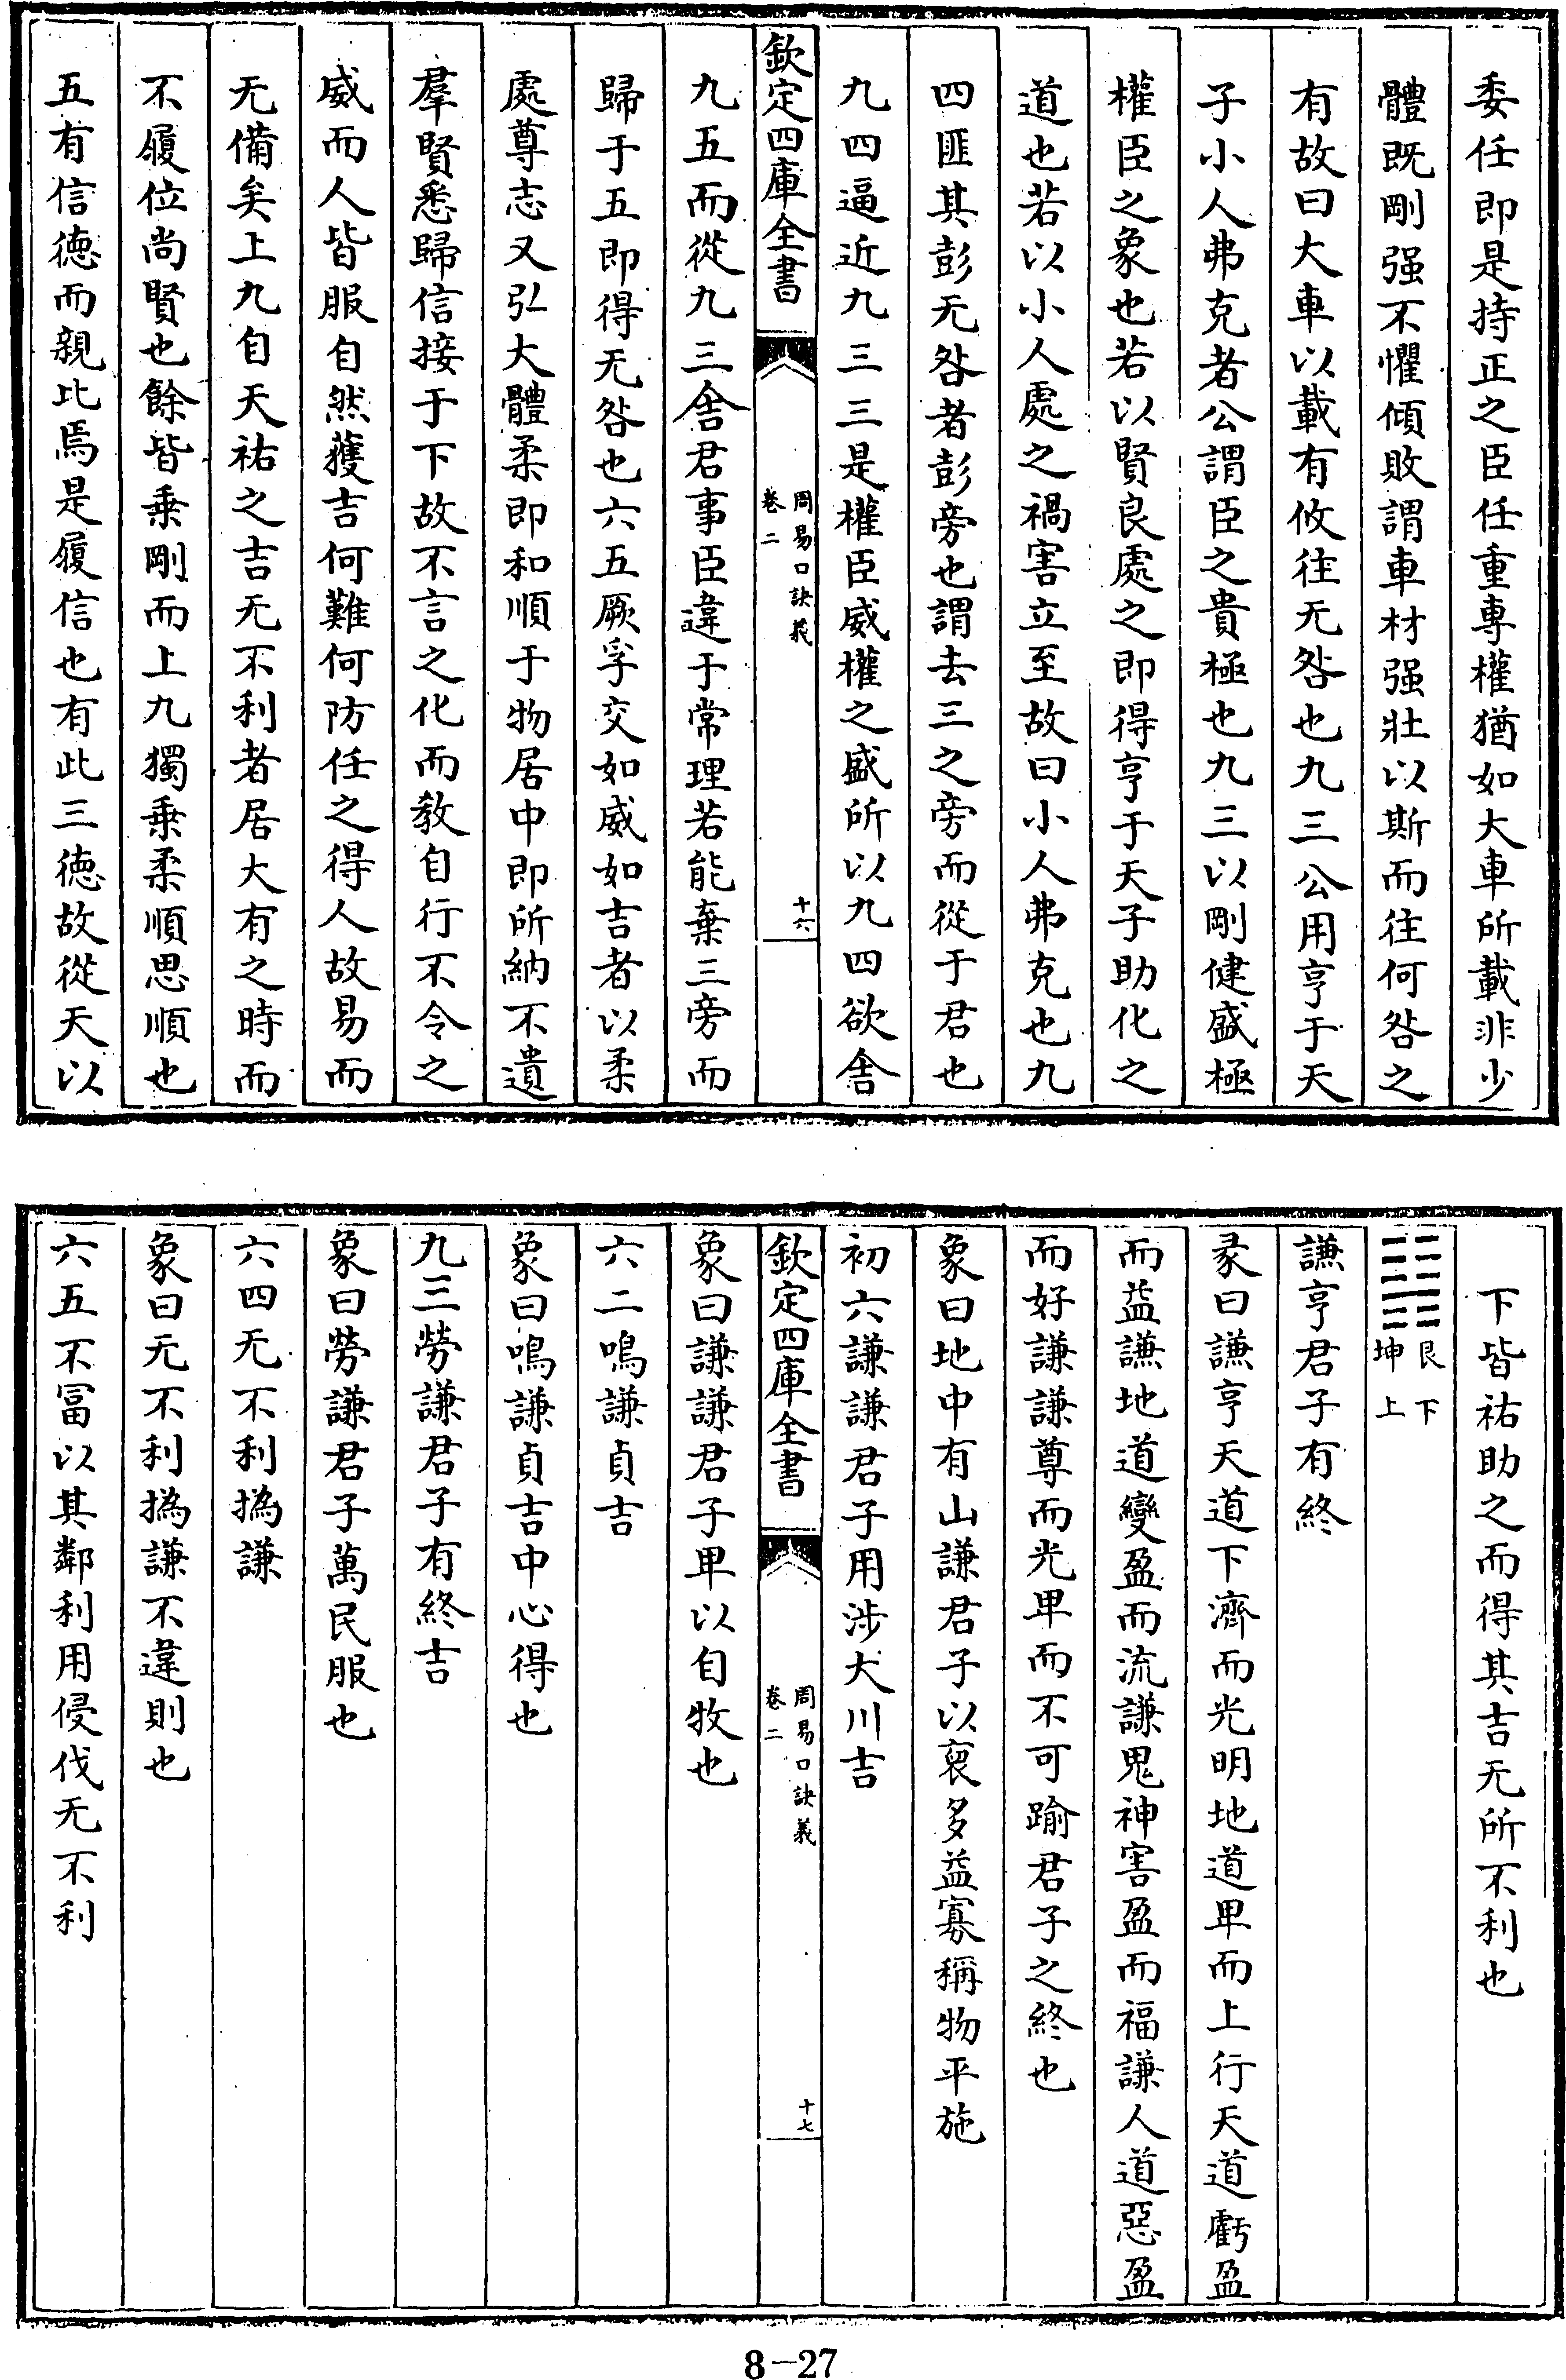 委任即是持正之臣任重專權猶如大車所載非少
體既剛强不懼傾敗謂車材强壯以斯而往何咎之
有故曰大車以載有攸往无咎也九三公用亨于天
子小人弗克者公謂臣之貴極也九三以剛健盛極
權臣之象也若以賢良處之即得亨于天子助化之
道也若以小人處之禍害立至故曰小人弗克也九
四匪其彭无咎者彭旁也謂去三之旁而從于君也
九四逼近九三三是權臣威權之盛所以九四欲舍
欽定四庫全書
周易口訣義
卷二
十六
九五而從九三舍君事臣違于常理若能棄三旁而
歸于五即得无咎也六五厥孚交如威如吉者以柔
處尊志又弘大體柔即和順于物居中即所納不遺
羣賢悉歸信接于下故不言之化而敎自行不令之
威而人皆服自然獲吉何難何防任之得人故易而
无備矣上九自天祐之吉无不利者居大有之時而
不履位尚賢也餘皆乗剛而上九獨乗柔順思順也
五有信德而親比焉是履信也有此三德故從天以
下皆祐助之而得其吉无所不利也
䷎
艮下
坤上
謙亨君子有終
彖曰謙亨天道下濟而光明地道卑而上行天道虧盈
而益謙地道變盈而流謙鬼神害盈而福謙人道惡盈
而好謙謙尊而光卑而不可踰君子之終也
象曰地中有山謙君子以裒多益寡稱物平施
初六謙謙君子用涉大川吉
欽定四庫全書
周易口訣義
卷二
十七
象曰謙謙君子卑以自牧也
六二鳴謙貞吉
象曰鳴謙貞吉中心得也
九三勞謙君子有終吉
象曰勞謙君子萬民服也
六四无不利撝謙
象曰无不利撝謙不違則也
六五不冨以其鄰利用侵伐无不利
8-27